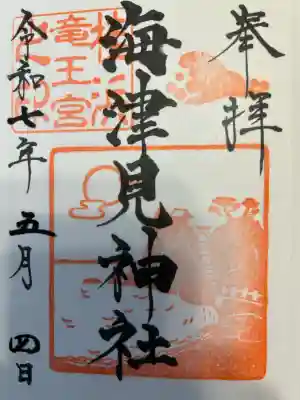 奉拝
海津見神社
竜王宮
令和七年五月四日